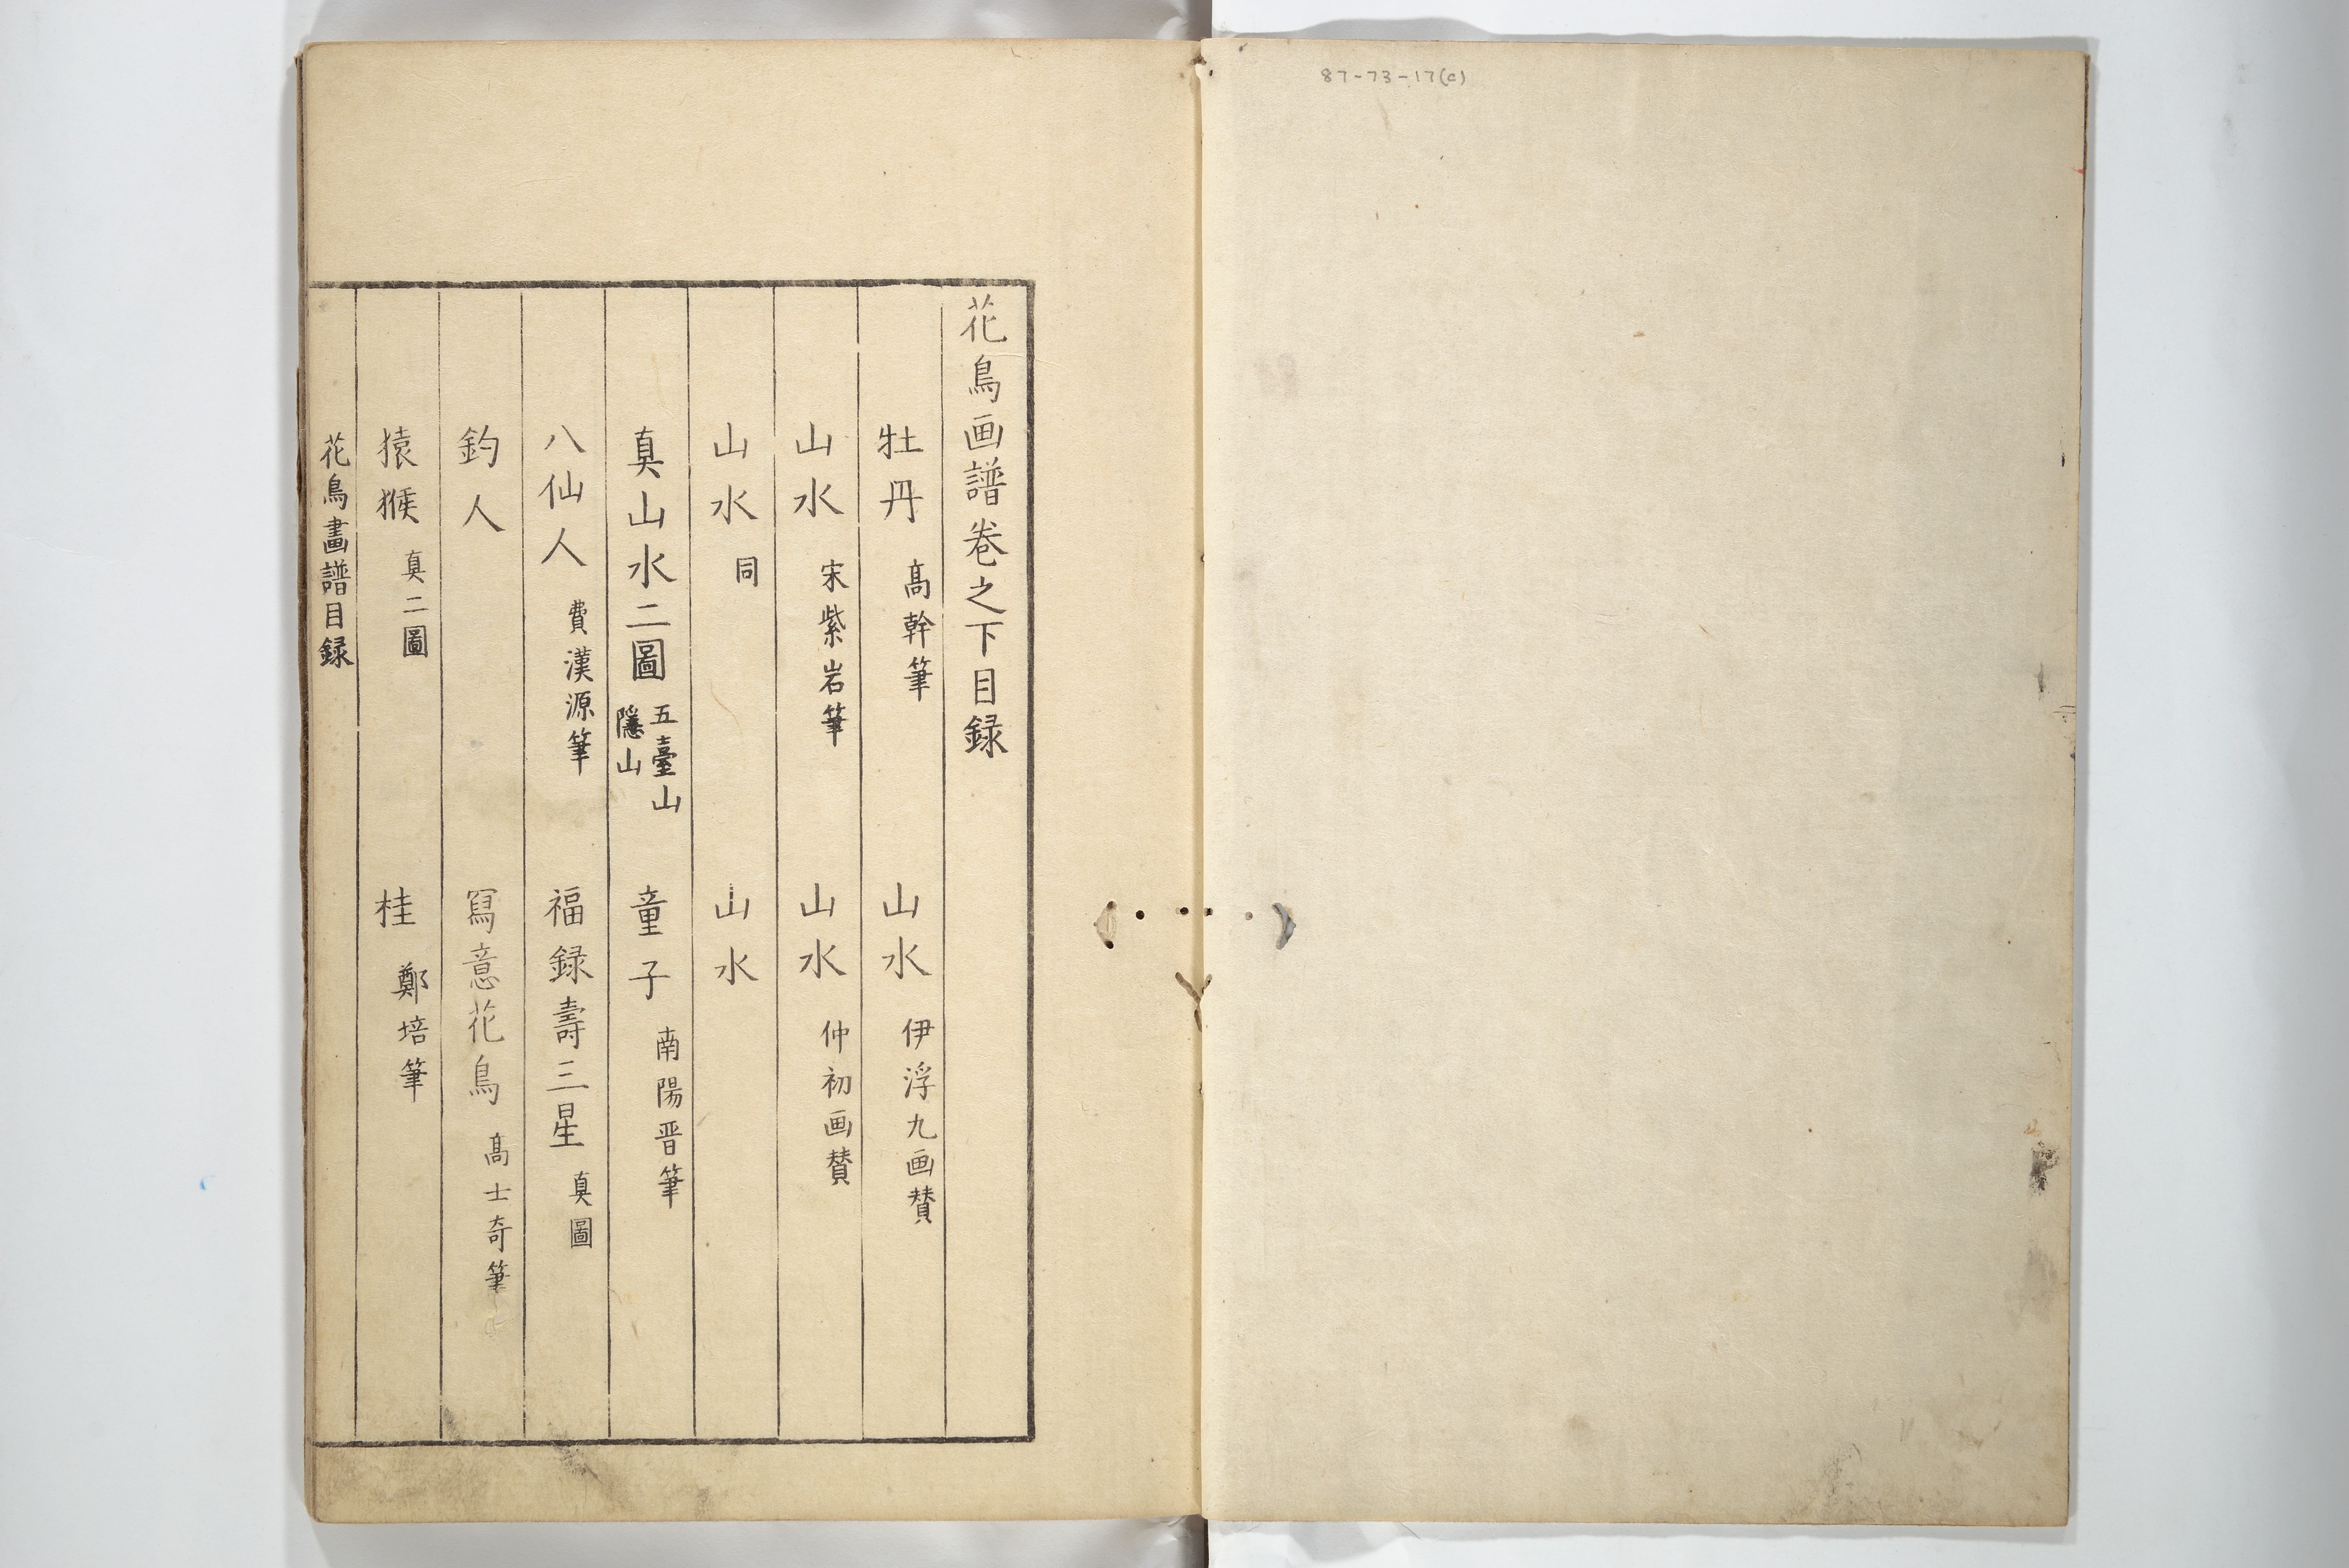 87-73-17(c)
花鳥画譜巻之下目録
牡丹 髙幹筆 山水 伊浮九画賛
山水 宋紫岩筆 山水 仲初画賛
山水 同 山水
真山水二圖 五臺山 隱山 童子 南陽晋筆
八仙人 費漢源筆 福録壽三星 真圖
釣人 寫意花鳥 髙士奇筆
猿猴 真二圖 桂 鄭培筆
花鳥畫譜目録